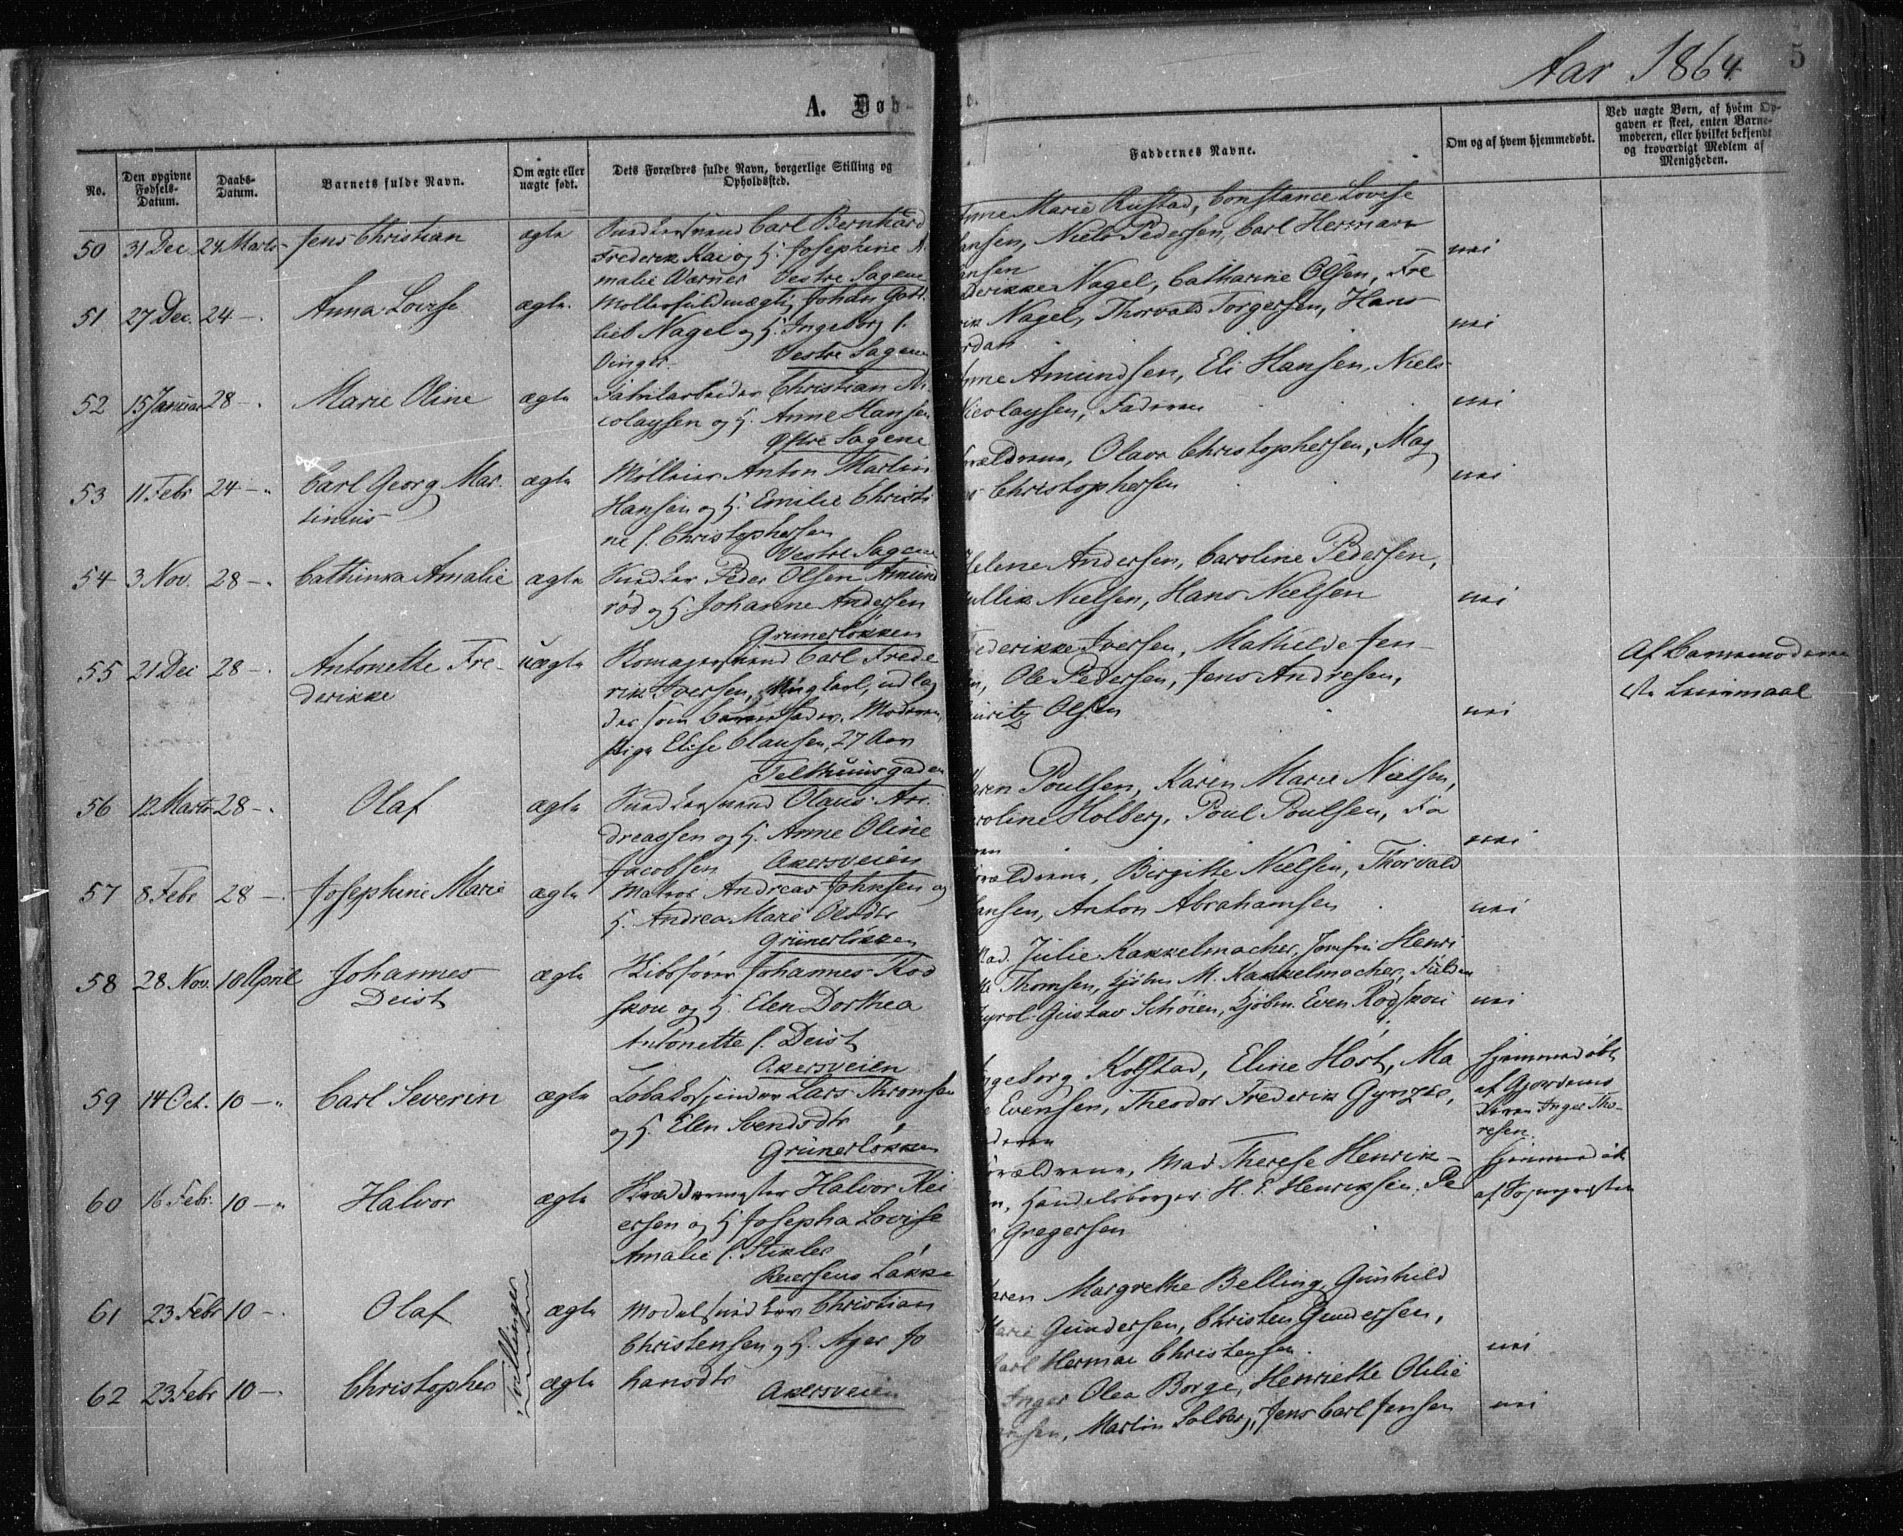 Aar 1864
5
A. Døb-
No.
Den opgivne Fødsels-Datum.
Daabs-Datum.
Barnets fulde Navn.
Om ægte eller uægte født.
Dets Forældres fulde Navn, borgerlige Stilling og Opholdssted.
Faddernes Navne.
Om og af hvem hjemmedøbt.
Ved uægte Børn, af hvem Op-
gaven er skeet, enten Barne-
moderen, eller hvilket bekjendt
og troværdigt Medlem af
Menigheden.
50 31 Dec 24 Marts Jens Christian ægte Snedkersvend Carl Bernhard
Frederik Kai og H. Josephine A-
malie Warner Vestre Sagene
Anne Marie Rustad, Constance Lovise
Hansen, Niels Pedersen, Carl Herman
Hansen
nei
51 27 Dec. 24 — Anna Lovise ægte. Møllerfuldmægtig Johan Gott-
lieb Nagel og H. Ingeborg f.
Dinger. Vestre Sagene
Frederikke Nagel, Catharine Olsen, Fre
rik Nagel, Thorvald Torgersen, Hans
Jordan
nei
52 15 Januar 28 — Marie Oline ægte Fabrikarbeider Christian Ni
colaysen og H. Anne Hansen
Østre Sagene
Anne Amundsen, Eli Hansen, Niels
Nicolaysen, Faderen
nei
53 11 Febr 24 — Carl Georg Mar-
tinius
ægte Mølleier Anton Martin
Hansen og H. Emilie Christi
ne f. Christophersen
Vestre Sagene
Forældrene, Olava Christophersen, Mag
Christophersen
nei
54 3 Nov. 28 — Cathinka Amalie ægte Snedker Peder Olsen Amund
rød og H. Johanne Andersen
Grünerløkken
Helene Andersen, Caroline Pedersen,
Gullik Nielsen, Hans Nielsen
nei
55 21 Dec 28 — Antonette Fre-
derikke
uægte Komagersvend Carl Frede
rik Iversen, Ungkarl, udlag
der som Barnefader. Moderen
Pige Elise Clausen, 27 Aar
Telthuusgaden
Frederikke Iversen, Mathilde Jen-
sen, Ole Pedersen, Jens Andresen,
Mauritz Olsen
nei
Af Barnemoderen
1ste Leiermaal
56 12 Marts 28 — Olaf ægte Snedkersvend Olaus An-
dreassen og H. Anne Oline
Jacobsen Akersveien
Karen Poulsen, Karen Marie Nielsen,
Caroline Holberg, Poul Poulsen, Fa
deren
nei
57 8 Febr 28 — Josephine Marie ægte Matros Andreas Johnsen og
H. Andrea Marie Olsdtr
Grünerløkken
Forældrene, Birgitte Nielsen, Thorvald
Hansen, Anton Abrahamsen
nei
58 28 Nov. 10 April Johannes
Deist
ægte Skibsfører Johannes Rod
skou og H. Elen Dorthea
Antonette f. Deist
Akersveien
Mad. Julie Kakkelmacher, Jomfru Henri
ette Thomsen, Kjøbm M. Kakkelmacher, Fuldm
Gustav Schøien, Kjøbm. Even Rodskou
nei
59 14 Oct. 10 — Carl Severin ægte Tobakspinder Lars Thromsen
og H. Elen Svendsdtr
Grünerløkken
Ingeborg Kolstad, Eline Høst, Ma
Evensen, Theodor Frederik
Faderen
Hjemmedøbt
af Gjordemo
deren Inger Tho-
resen.
60 16 Febr. 10 — Halvor ægte Skræddermester Halvor Rei
ersen og H Josepha Lovise
Amalie f. Stixler
Reiersens Løkke
Forældrene, Mad Therese Henrik-
sen, Handelsborger H. E. Henriksen, Pe
Gregersen
Hjemmedøbt
af Sognepresten
61 23 Febr 10 — Olaf ægte Modelsnedker Christian
Christensen og H. Ager Jo
Tvillinger
Karen Margrethe Belling, Gunhild
Marie Gundersen, Christen Gundersen,
Carl Herman Christensen.
nei
62 23 Febr 10 — Christopher ægte hansdtr Akersveien
Inger Olea Borge, Henriette Otilie
Hansen, Martin Solberg, Jens Carl Jensen
nei